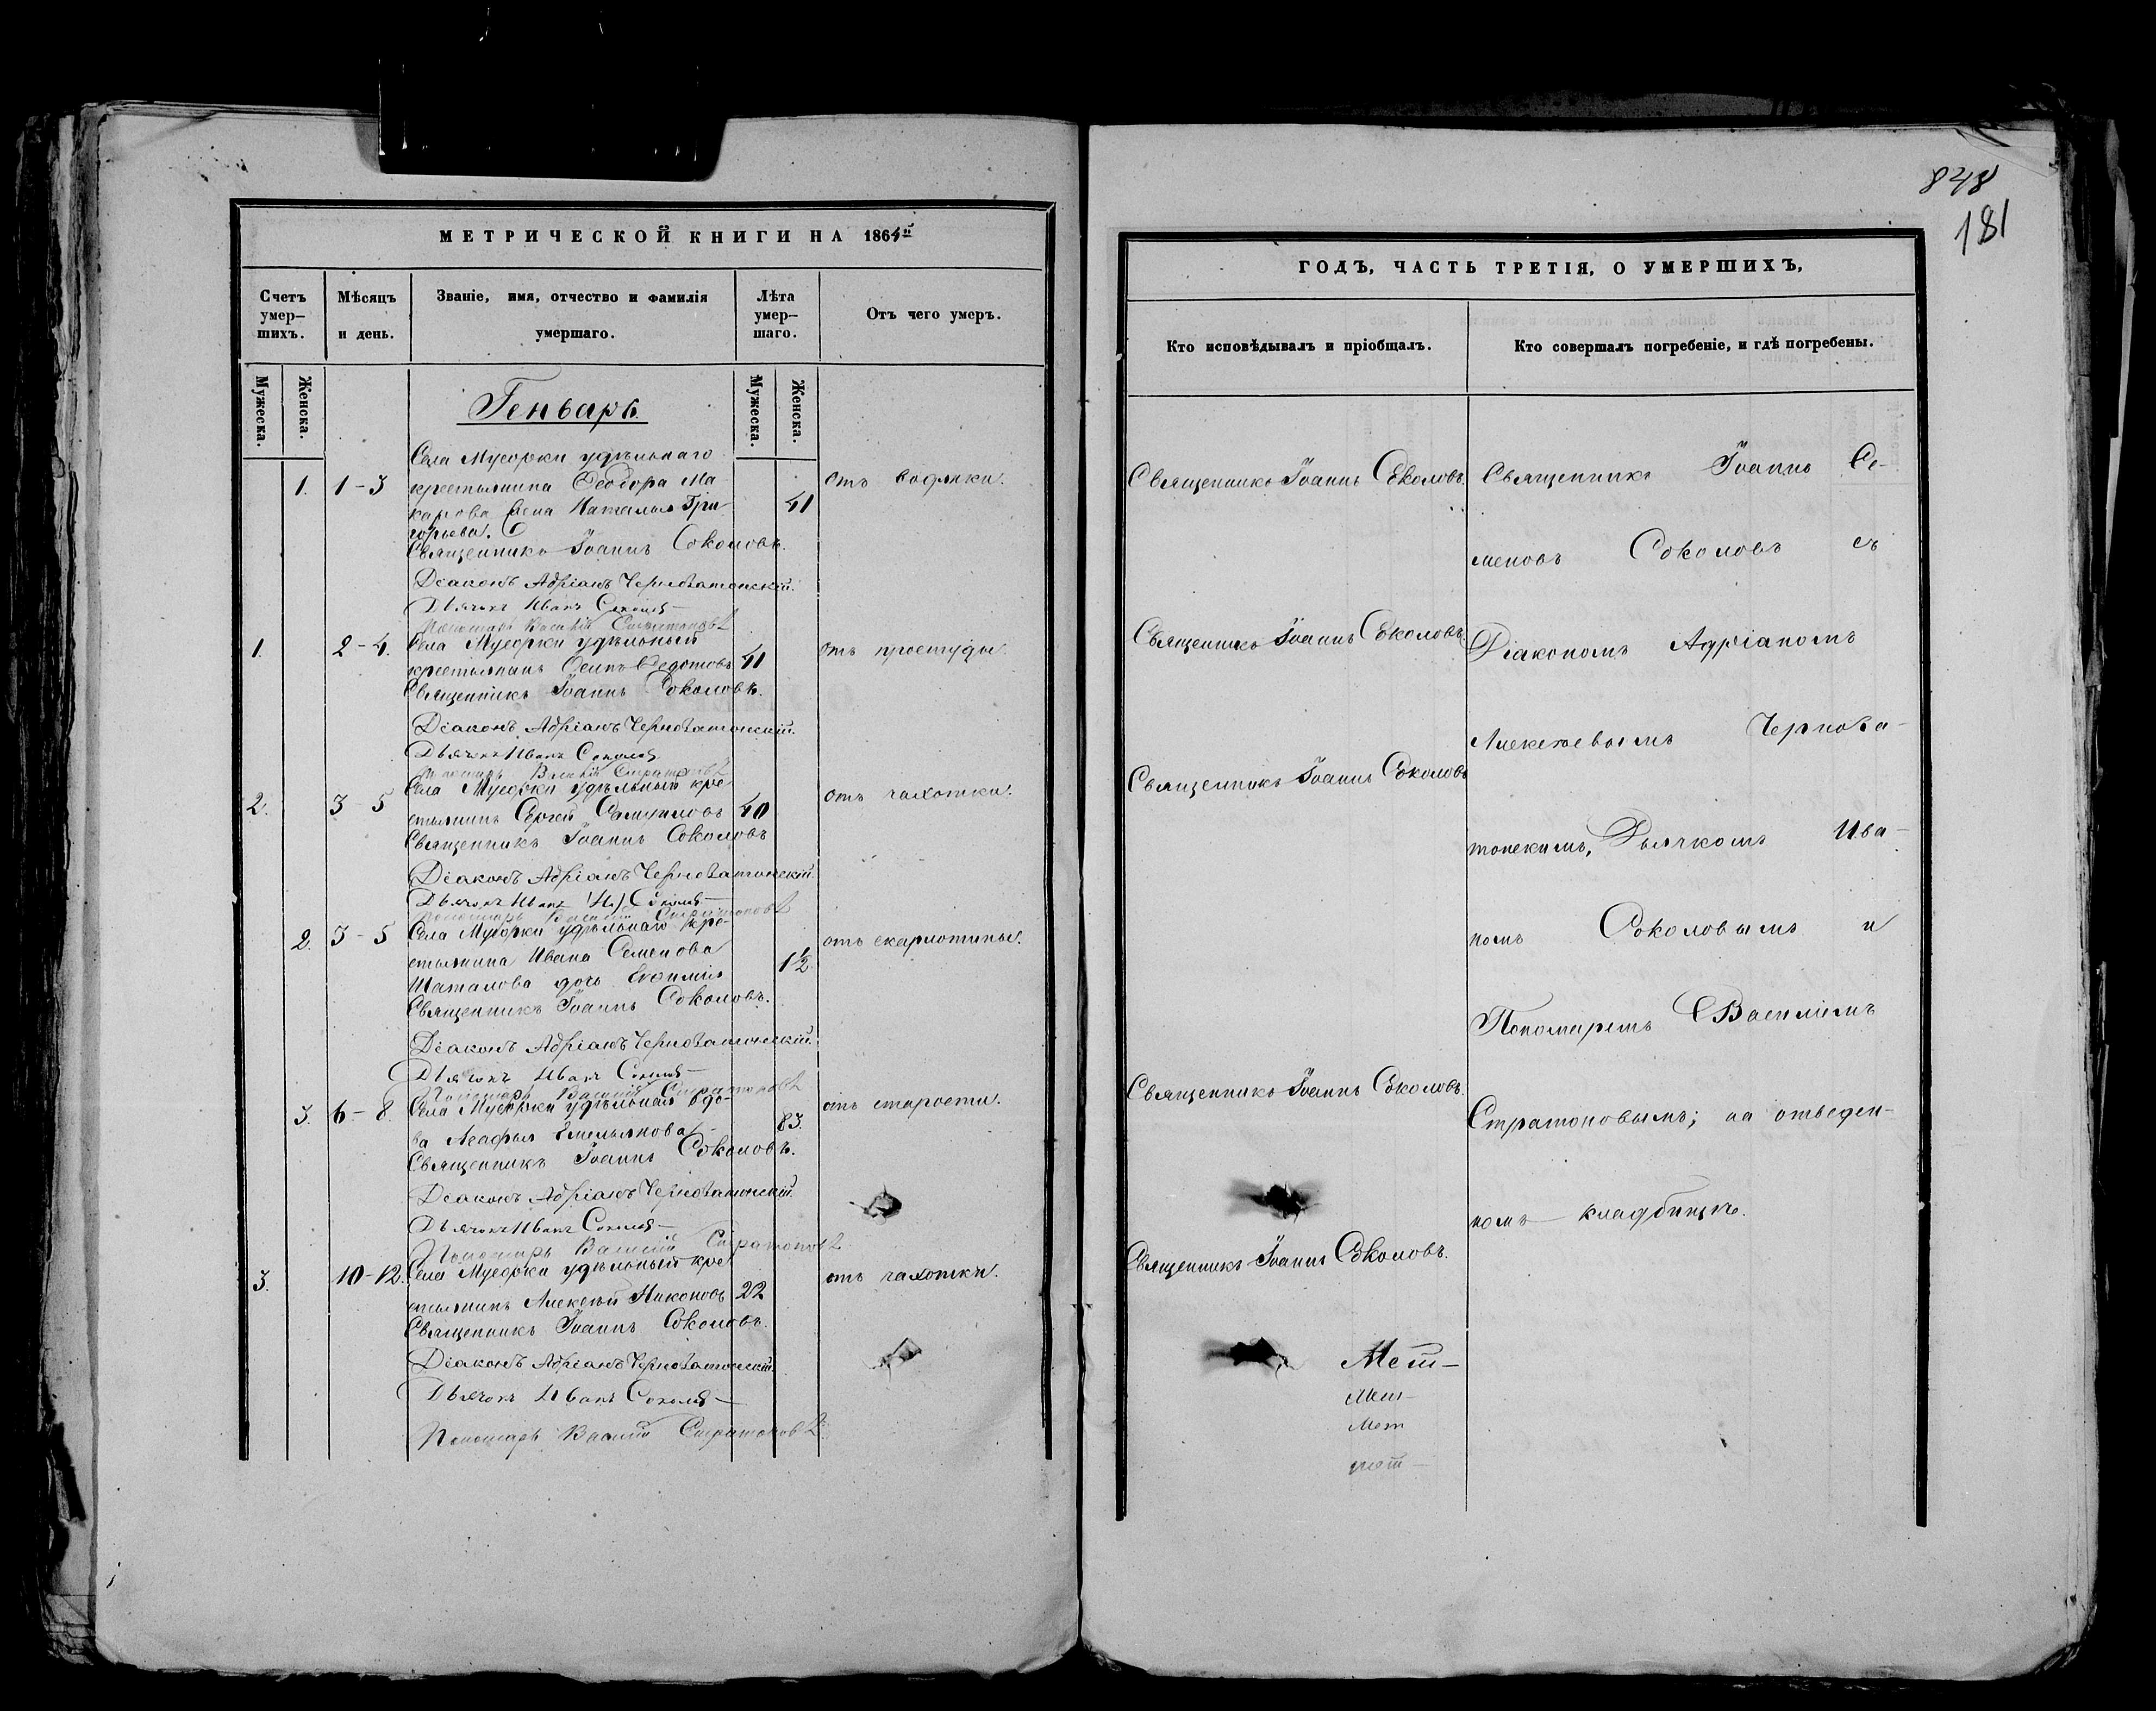 МЕТРИЧЕСКОЙ КНИГИ НА 1864й
Счетъ умер-
шихъ.
Мѣсяцъ
и день.
Званіе, имя, отчество и фамилія
умершаго.
Лѣта
умер-
шаго.
Отъ чего умеръ.
Мужеска.
Женска.
Мужеска.
Женска.
Генварь.
Села Мусорки удѣльнаго
1. 1-3 крестьянина Ѳеодора Ма- 41 отъ водянки.
карова жена Наталья Гри-
горьева.
Священникъ Іоаннъ Соколовъ.
Діаконъ Адріанъ Черноватонскій.
Дьячокъ Иванъ Соколовъ
Пономарь Василій Стратоновъ
1. 2-4. Села Мусорки удѣльный отъ простуды.
крестьянинъ Осипъ Ѳедотовъ 41
Священникъ Іоаннъ Соколовъ.
Діаконъ Адріанъ Черноватонскій.
Дьячокъ Иванъ Соколовъ
Пономарь Василій Стратоновъ
Села Мусорки удѣльный кре-
2. 3-5 стьянинъ Сергей Самуиловъ 40 отъ чахотки.
Священникъ Іоаннъ Соколовъ
Діаконъ Адріанъ Черноватонскій.
Дьячокъ Иванъ Соколовъ
Пономарь Василій Стратоновъ
2. 3-5 Села Мусорки удѣльнаго кре- отъ скарлотины.
стьянина Ивана Семенова 1½
Шаталова дочь Евѳимія
Священникъ Іоаннъ Соколовъ.
Діаконъ Адріанъ Черноватонскій.
Дьячокъ Иванъ Соколовъ
Пономарь Василій Стратоновъ
3. 6-8. Села Мусорки удѣльная вдо- 83. отъ старости.
ва Агафья Емельянова
Священникъ Іоаннъ Соколовъ.
Діаконъ Адріанъ Черноватонскій.
Дьячокъ Иванъ Соколовъ
Пономарь Василій Стратоновъ
3. 10-12. Села Мусорки удѣльный кре- отъ чахотки.
стьянинъ Алексѣй Никоновъ 22
Священникъ Іоаннъ Соколовъ.
Діаконъ Адріанъ Черноватонскій.
Дьячокъ Иванъ Соколовъ
Пономарь Василій Стратоновъ
848
181
ГОДЪ, ЧАСТЬ ТРЕТІЯ, О УМЕРШИХЪ,
Кто исповѣдывалъ и пріобщалъ.
Кто совершалъ погребеніе, и гдѣ погребены.
Священникъ Іоаннъ Соколовъ.
Священникъ Іоаннъ Соколовъ.
Священникъ Іоаннъ Соколовъ
Священникъ Іоаннъ Соколовъ.
Священникъ Іоаннъ Соколовъ.
Мет-
Мет-
Мет
мет-
Священникъ Іоаннъ Се-
меновъ Соколовъ съ
Діакономъ Адріаномъ
Алексѣевымъ Чернова-
тонскимъ, Дьячкомъ Ива-
номъ Соколовымъ и
Пономаремъ Василіемъ
Стратоновымъ; на отведен-
номъ кладбищѣ.